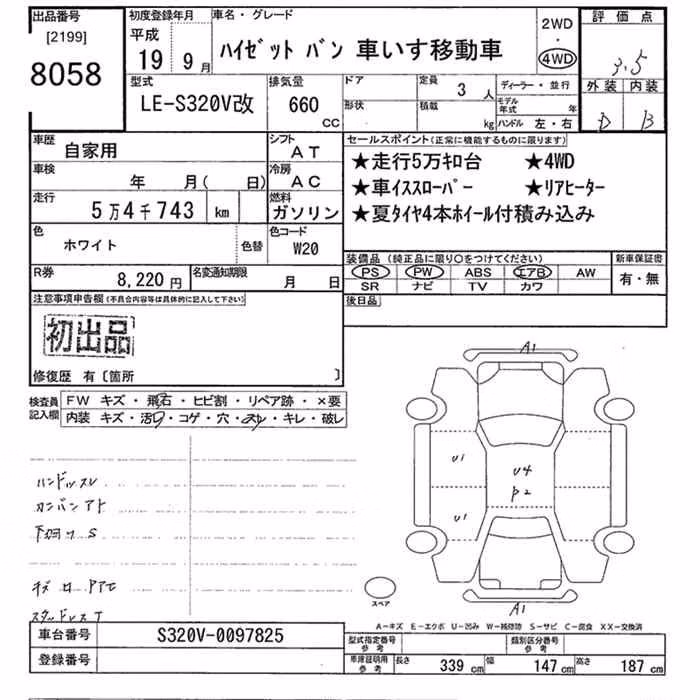 出品番号
[2199]
8058
初度登録年月
平成
19 9月
車名・グレード
ﾊｲｾﾞｯﾄ ﾊﾞﾝ 車いす移動車
2WD
・
4WD
評価点
3.5
外装 内装
D B
型式
LE-S320V改
排気量
660
cc
ドア
形状
定員
3 人
積載
kg
ディーラー・並行
モデル年式 年
ハンドル 左・右
車歴
自家用
シフト
AT
車検
年 月( 日)
冷房
AC
走行
5万4千743 km
燃料
ガソリン
色
ホワイト
色替
色コード
W20
R券
8,220円
名変通知期限
月 日
セールスポイント(正常に機能するものに限ります)
★走行5万ｷﾛ台 ★4WD
★車ｲｽｽﾛｰﾊﾟｰ ★ﾘｱﾋｰﾀｰ
★夏ﾀｲﾔ4本ﾎｲｰﾙ付積み込み
装備品(純正品に限り○をつけてください)
PS PW ABS エアB AW
SR ナビ TV カワ
新車保証書
有・無
後日品
注意事項申告欄(不具合内容等は具体的に記入して下さい)
初出品
修復歴 有〔箇所 〕
検査員記入欄
FW キズ・飛石・ヒビ割・リペア跡・×要
内装 キズ・汚れ・コゲ・穴・スレ・キレ・破レ
ハンドルスレ
カンバンアト
下廻りS
スタッドレスT
A1
U1
U4
P2
U1
A1
スペア
A－キズ E－エクボ U－凹み W－補修跡 S－サビ C－腐食 XX－交換済
車台番号
S320V-0097825
登録番号
型式指定番号
参考
類別区分番号
参考
車庫証明用
参考
長さ 339 cm 幅 147 cm 高さ 187 cm